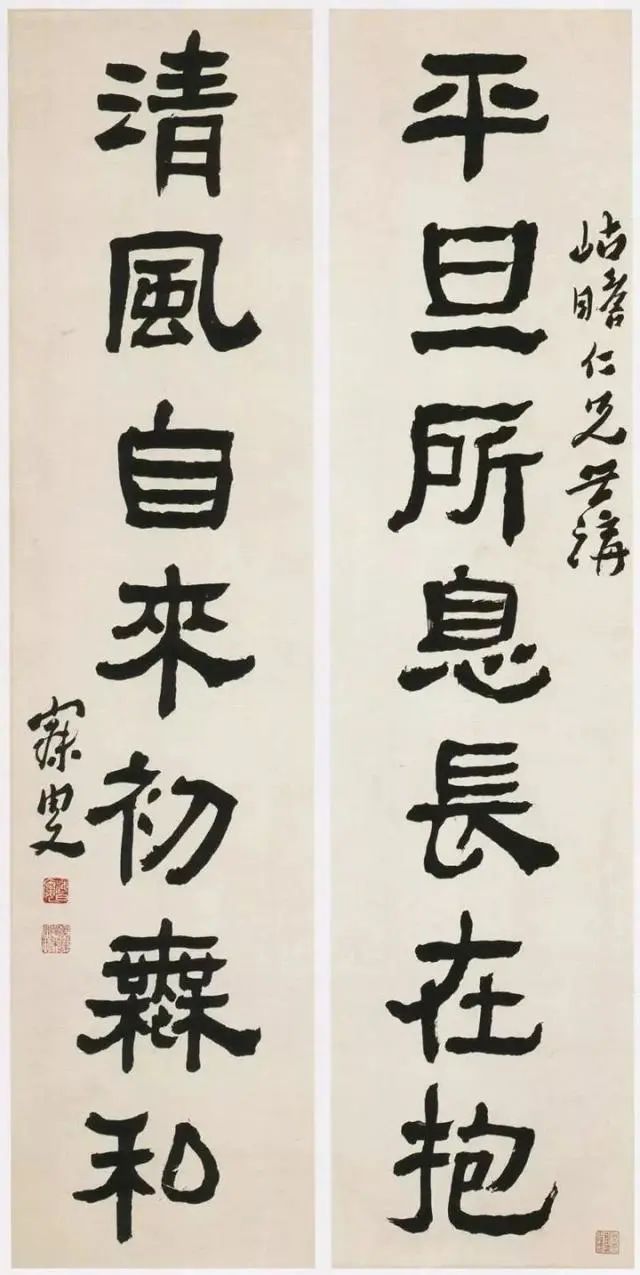 平旦所息長在抱
岵瞻仁兄世講
清風自來初橆和
寐叟